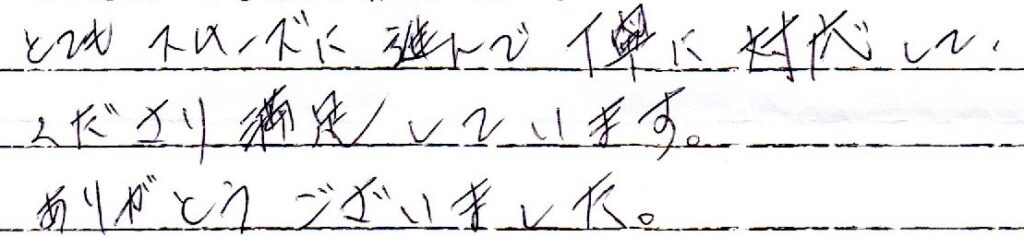 とても スムーズに 進んで 大変に 対応して
くださり 満足しています。
ありがとうございました。